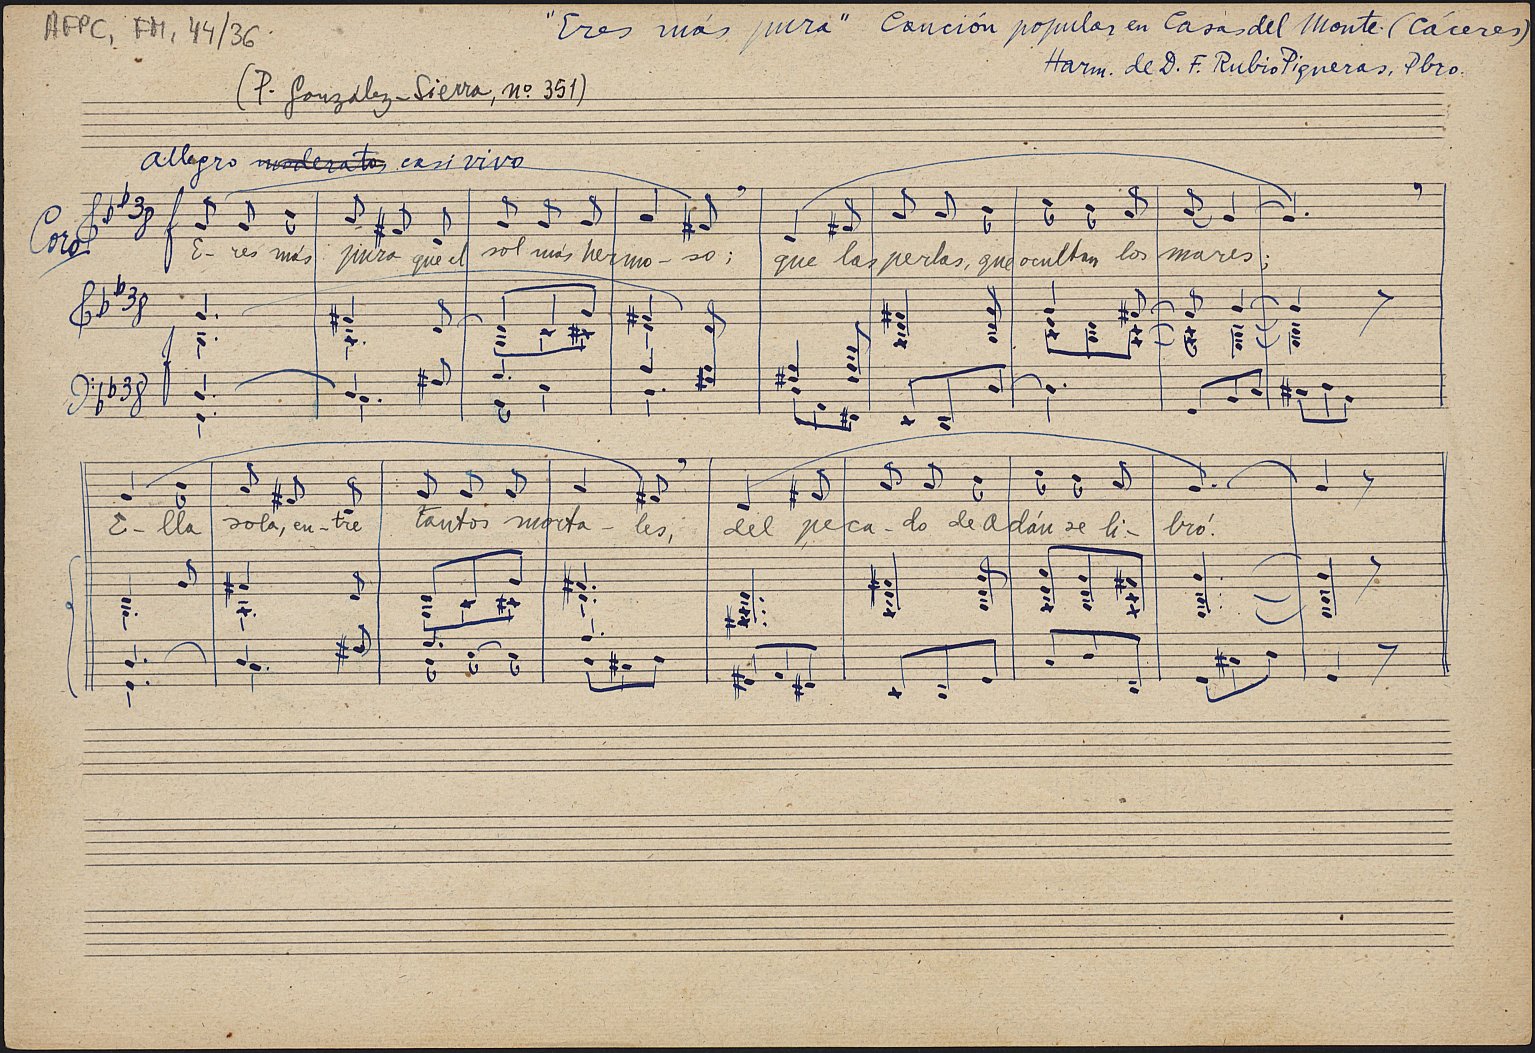 AFPC, FM, 44/36
"Eres más pura" Canción popular en Casas del Monte (Cáceres)
Harm. de D. F. Rubio Piqueras, Pbro.
(P. González-Sierra, nº 351)
Allegro moderato casi vivo
Coro
E- res más pura que el sol más hermo- so; que las perlas, que ocultan los mares;
E- lla sola, en-tre tantos morta- les, del peca- do de Adán se li- bró.